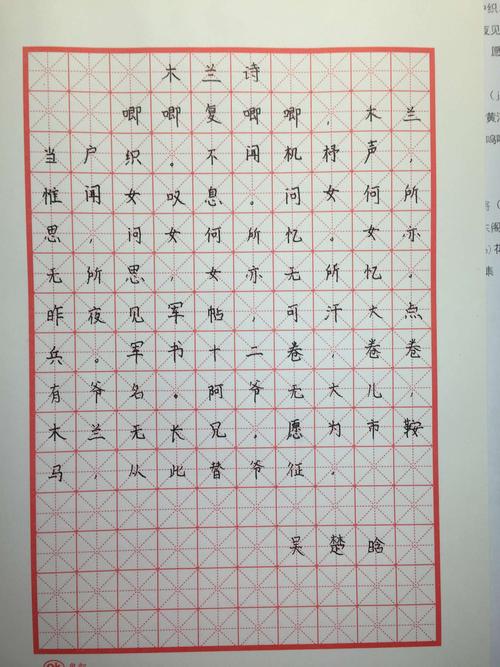 木兰诗
唧唧复唧唧，木兰
当户织。不闻机杼声，
惟闻女叹息。问女何所
思，问女何所忆。女亦
无所思，女亦无所忆。
昨夜见军帖，可汗大点
兵。军书十二卷，卷卷
有爷名。阿爷无大儿，
木兰无长兄，愿为市鞍
马，从此替爷征。
吴楚晗